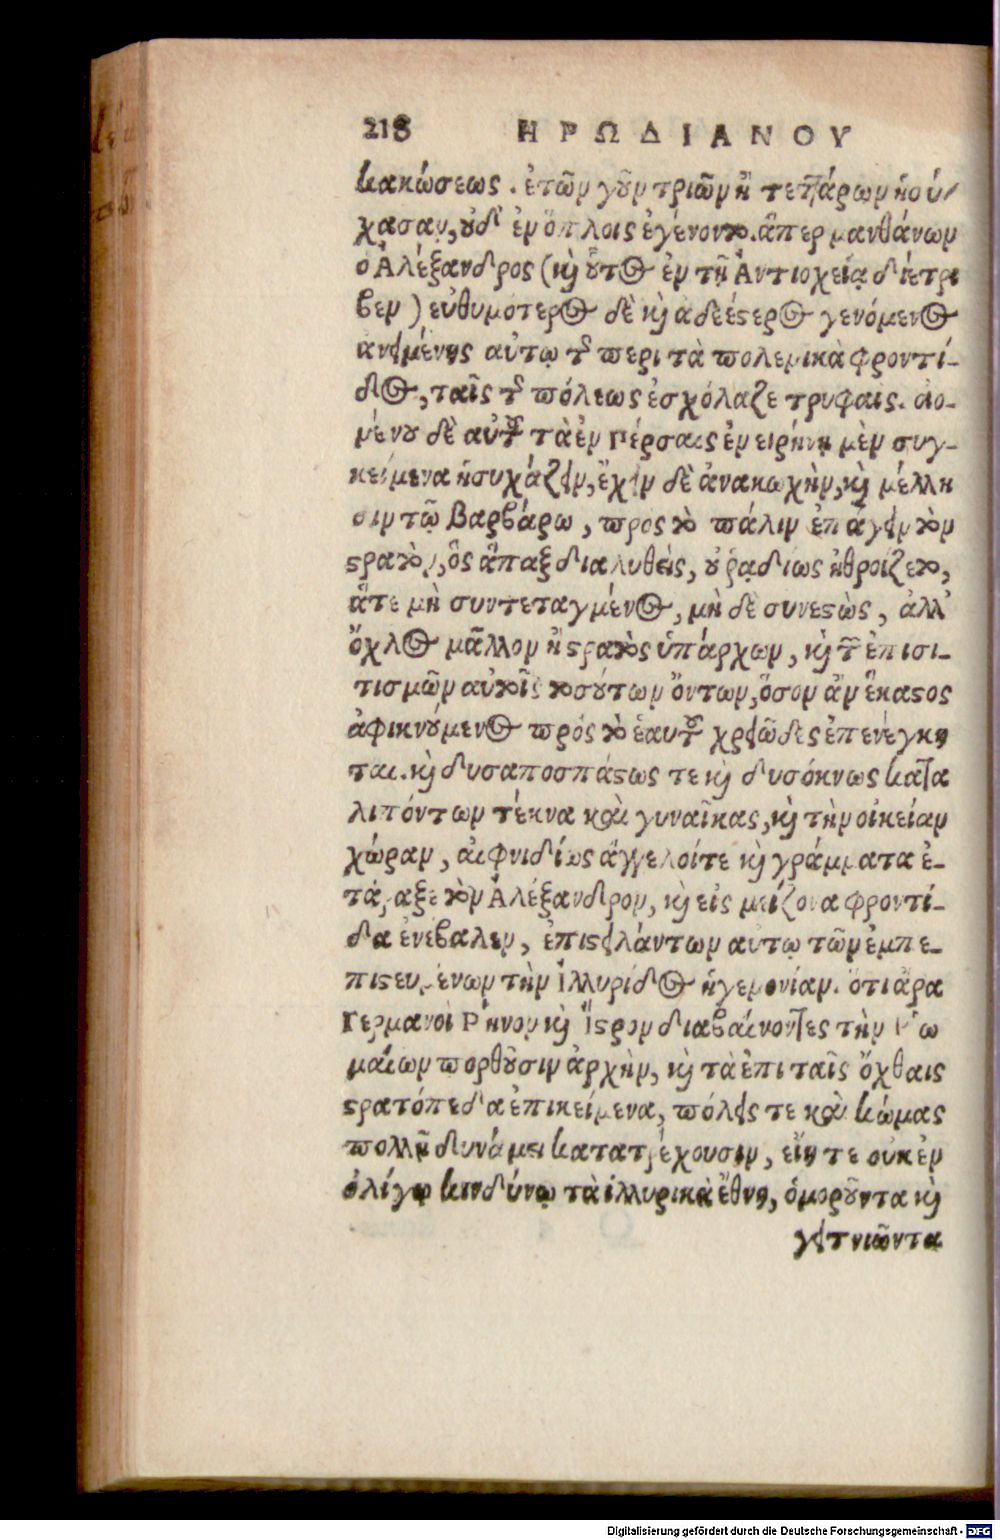 218 ΗΡΩΔΙΑΝΟΥ
κακώσεως. ἐτῶν γοῦν τριῶν ἢ τεττάρων ἡσύ-
χασαν, οὐδ' ἐν ὅπλοις ἐγένοντο. ἅπερ μανθάνων
ὁ Ἀλέξανδρος (καὶ οὗτος ἐν τῇ Ἀντιοχείᾳ διέτρι
βεν) εὐθυμότερος δὲ καὶ ἀδεέστερος γενόμενος
ἀνειμένης αὐτῷ τῆς περὶ τὰ πολεμικὰ φροντί-
δος, ταῖς τῆς πόλεως ἐσχόλαζε τρυφαῖς. οἰο-
μένου δὲ αὐτοῦ τὰ ἐν Πέρσαις ἐν εἰρήνῃ μὲν συγ-
κείμενα ἡσυχάζειν, ἔχειν δὲ ἀνακωχὴν, καὶ μέλλη
σιν τῷ βαρβάρω, πρὸς τὸ πάλιν ἐπάγειν τὸν
στρατὸν, ὃς ἅπαξ διαλυθεὶς, οὐ ῥᾳδίως ἠθροίζετο,
ἅτε μὴ συντεταγμένος, μὴ δὲ συνεστὼς, ἀλλ'
ὄχλος μᾶλλον ἢ στρατὸς ὑπάρχων, καὶ τῶν ἐπισι-
τισμῶν αὐτοῖς τοσούτων ὄντων, ὅσον ἂν ἕκαστος
ἀφικνούμενος πρὸς τὸ ἑαυτοῦ χρειῶδες ἐπενέγκη
ται. καὶ δυσαποσπάστως τε καὶ δυσόκνως κατα
λιπόντων τέκνα καὶ γυναῖκας, καὶ τὴν οἰκείαν
χώραν, αἰφνιδίως ἄγγελοίτε καὶ γράμματα ἐ-
τάραξε τὸν Ἀλέξανδρον, καὶ εἰς μείζονα φροντί-
δα ἐνέβαλεν, ἐπιστειλάντων αὐτῷ τῶν ἐμπε-
πιστευμένων τὴν Ἰλλυρίδος ἡγεμονίαν. ὅτι ἄρα
Γερμανοὶ Ῥῆνον καὶ Ἴστρον διαβαίνοντες τὴν Ῥω
μαίων πορθοῦσιν ἀρχὴν, καὶ τὰ ἐπὶ ταῖς ὄχθαις
στρατόπεδα ἐπικείμενα, πόλεις τε καὶ κώμας
πολλῇ δυνάμει κατατρέχουσιν, εἴη τε οὐκ ἐν
ὀλίγῳ κινδύνῳ τὰ ἰλλυρικὰ ἔθνη, ὁμοροῦντα καὶ
γειτνιῶντα
Digitalisierung gefördert durch die Deutsche Forschungsgemeinschaft - DFG